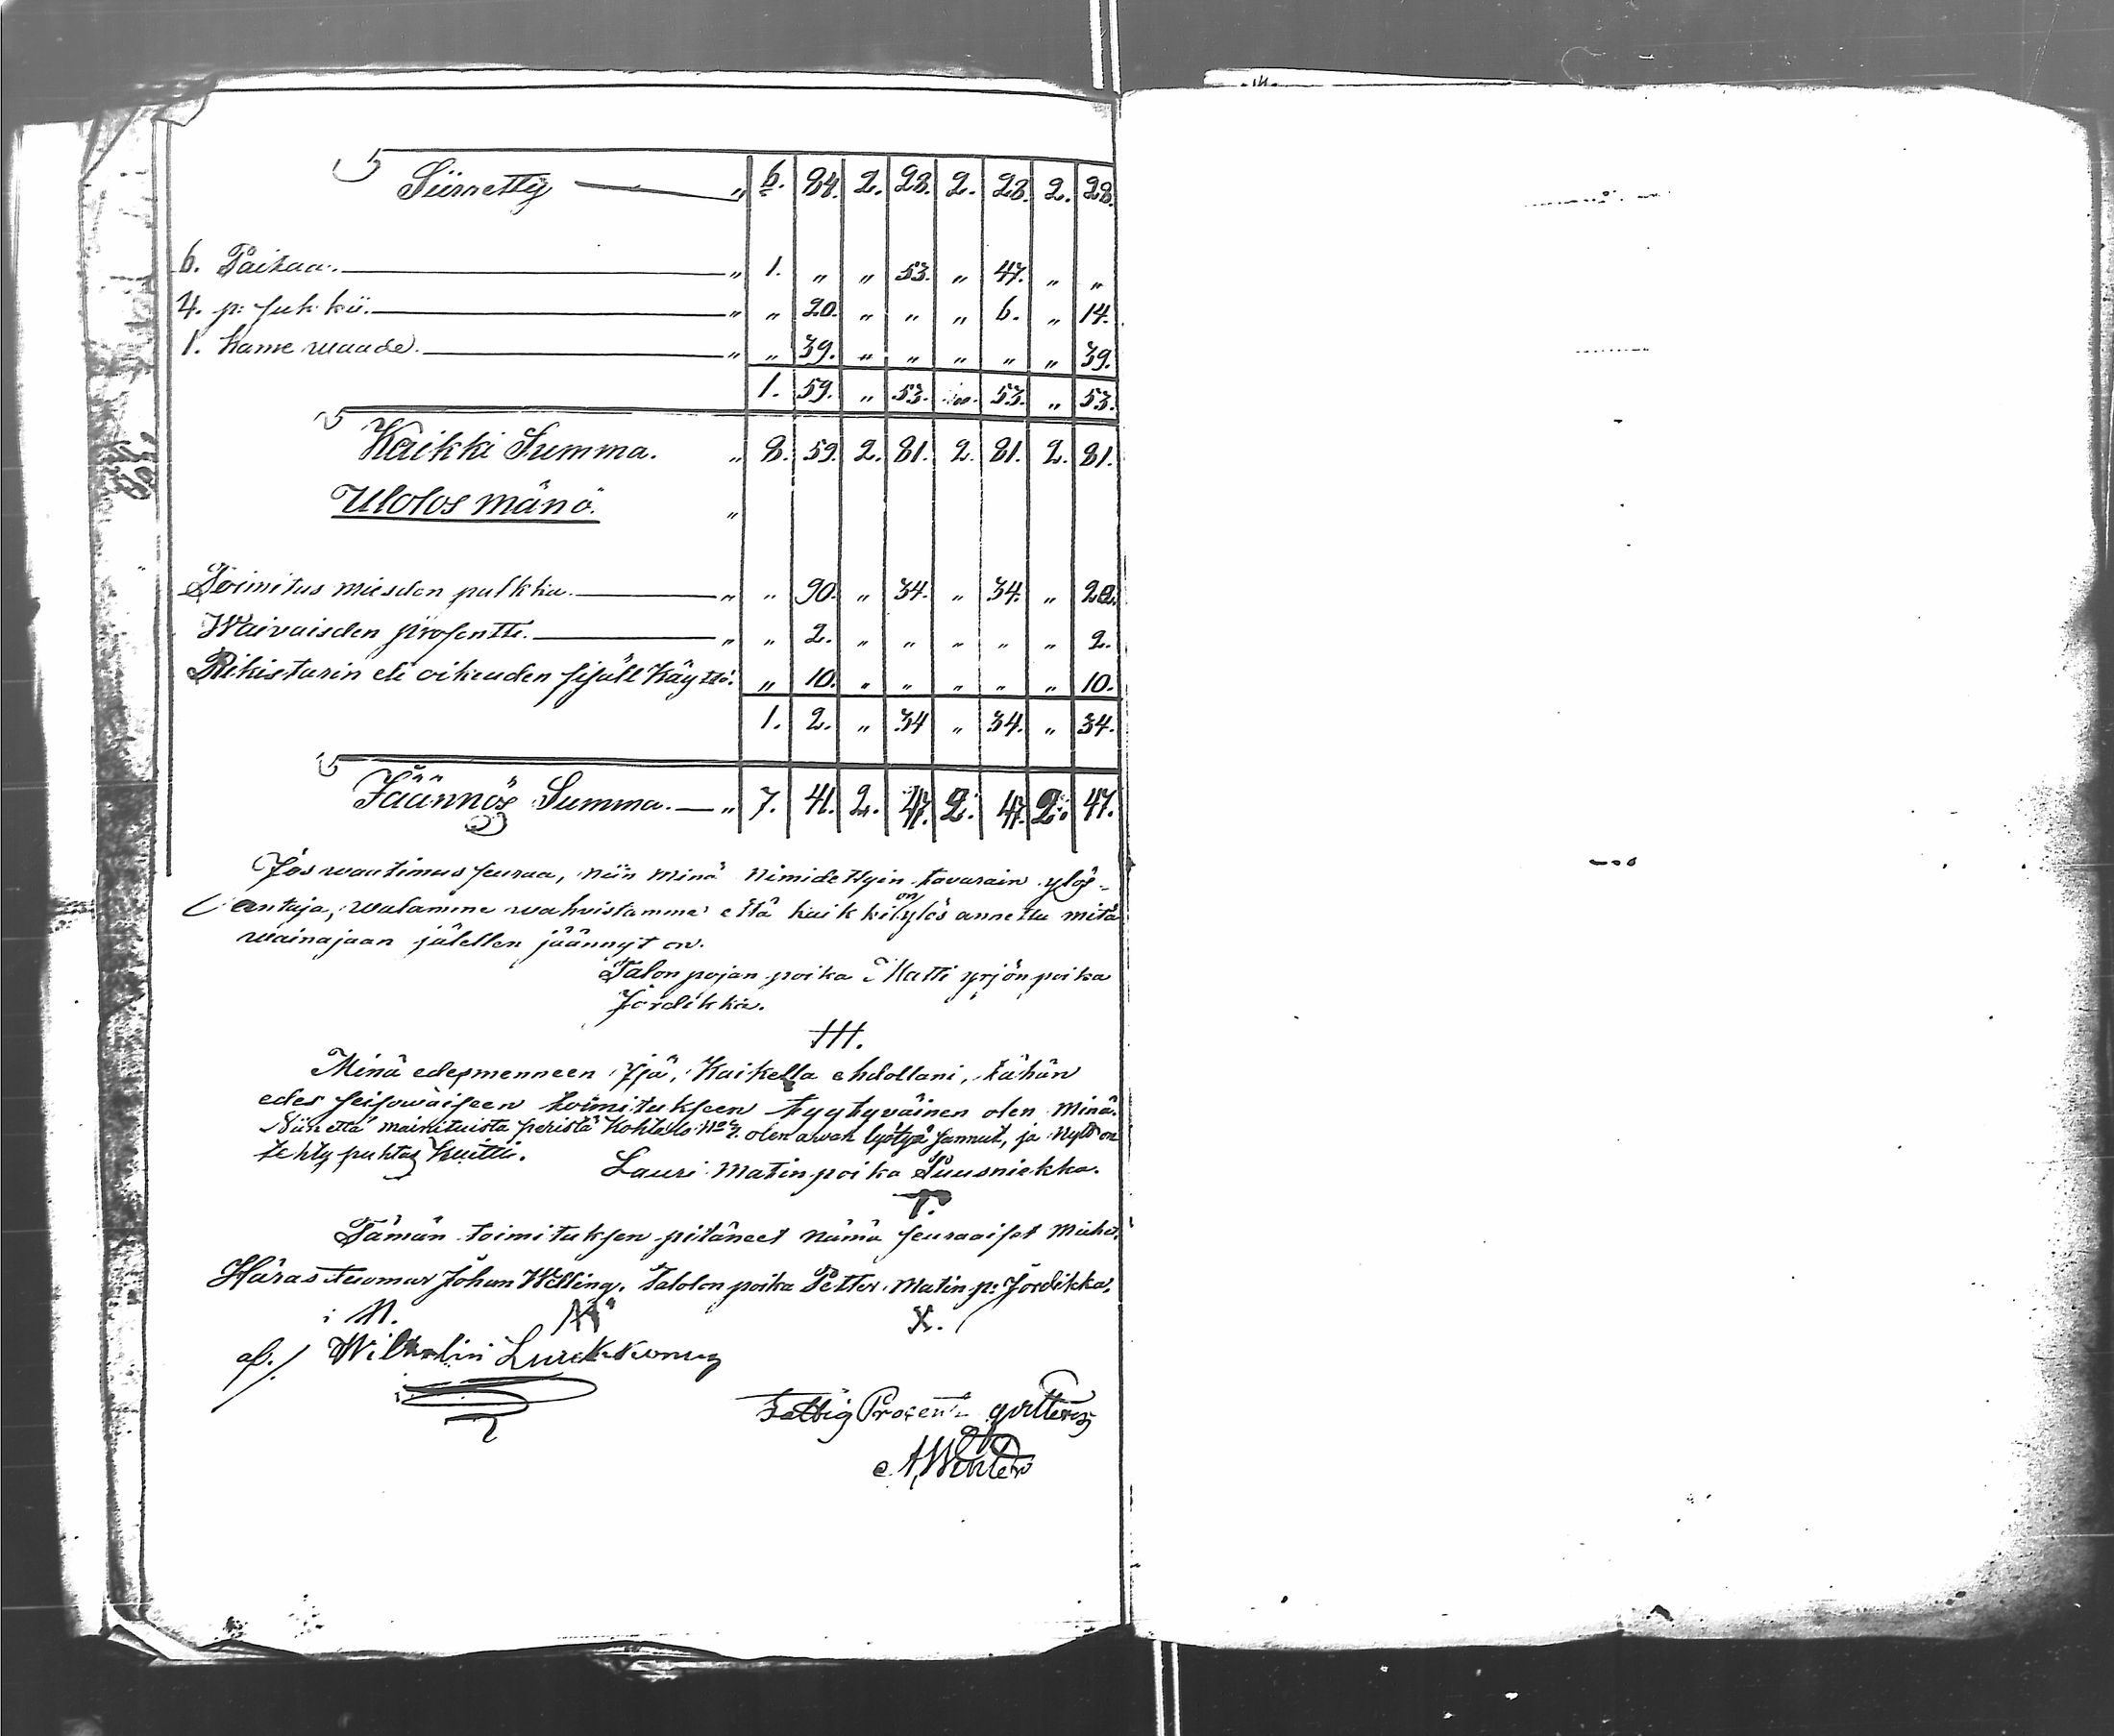 Siirretty — " 6. 84. 2. 28. 2. 28. 2. 28.
6. Paitaa. — " 1. " " 53. " 47. " "
4. p: sukkii. — " " 20. " " " 6. " 14.
1. hame waade. — " " 39. " " " " " 39.
1. 59. " 53. " 53. " 53.
Kaikki Summa. " 8. 59. 2. 81. 2. 81. 2. 81.
Ulolos mänö. "
Toimitus miesden palkka. — " " 90. " 34. " 34. " 22.
Waivaisden prosentti. — " " 2. " " " " " 2.
Rikisturin eli oikeuden sisäll Käyttö. " 10. " " " " " 10.
1. 2. " 34 " 34. " 34.
Jäännös Summa. — " 7. 41. 2. 47. 2. 47. 2. 47.
Jos waatimus seuraa, niin minä nimidettyin tavarain ylös-
antaja, walamme wahvistamme että kaikki on ylös annettu mitä
wainajaan jälellen jäännyt on.
Talonpojan poika Matti yrjönpoika
Jördikkä.
HH.
Minä edesmenneen Isä, Kaikella ehdollani, tähän
edes seisowaiseen toimitukseen tyytyväinen olen minä.
Niin että mainituista peristä Kohta No 2. olen awan lyötyä sannut, ja Nyt on
tehty puhtas kuitti.
Lauri Matinpoika Suusniekka.
T.
Tämän toimituksen pitäneet nämä seuraaiset miehet.
Häras tuomar Johan Welling. Talolon poika Petter Matin p: Jördikka,
M. X.
af./ Wilhelm
Fattig Procent qvitteras
A, Winter